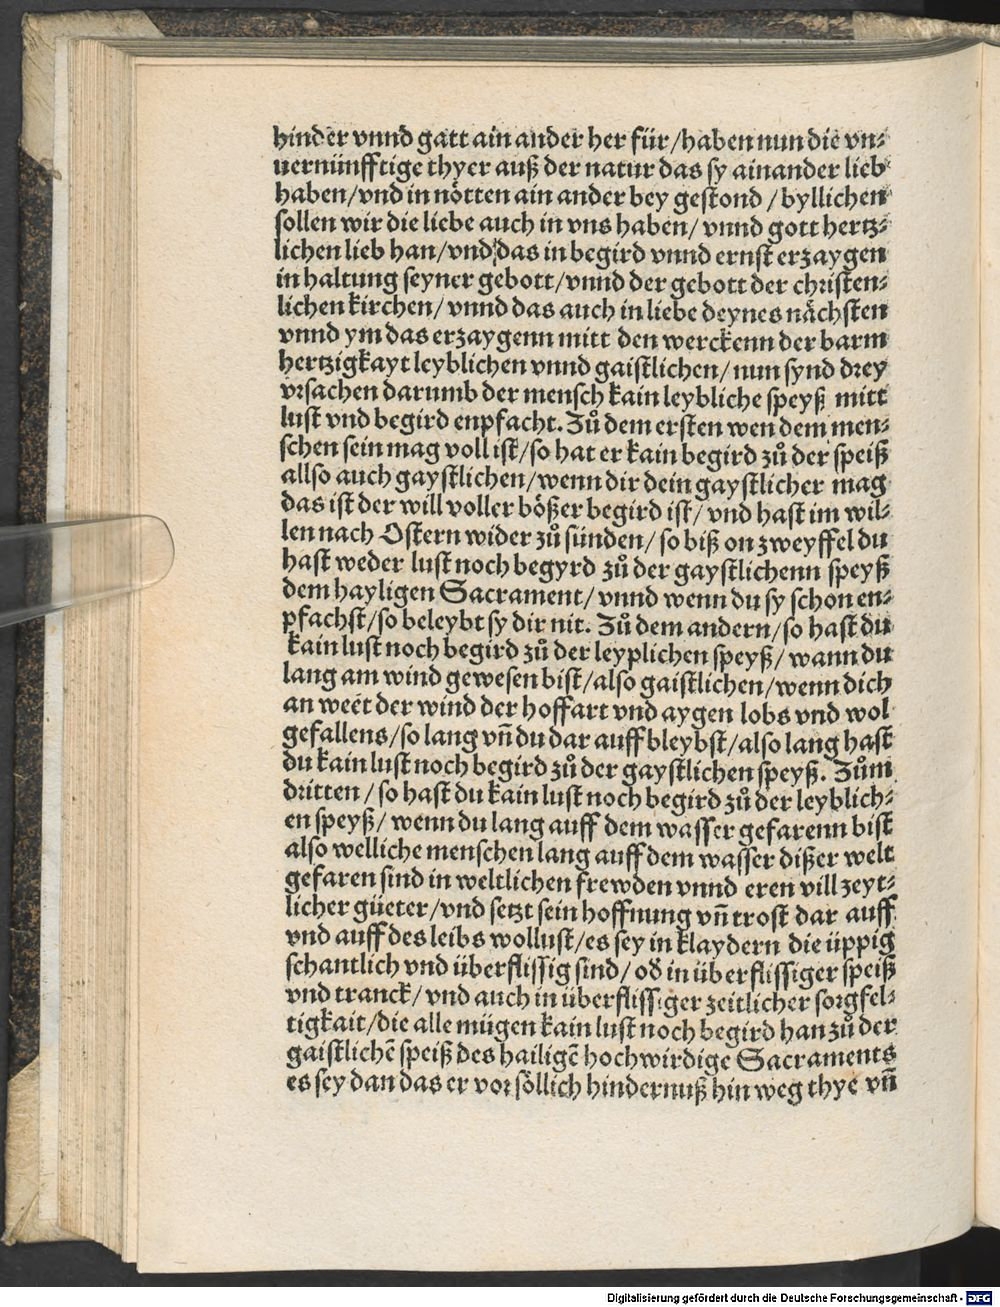 hinder vnnd gatt ain ander her für/haben nun die vn⸗
uernünfftige thyer auß der natur das sy ainander lieb
haben/vnd in nötten ain ander bey gestond /byllichen
sollen wir die liebe auch in vns haben/ vnnd gott hertz⸗
lichen lieb han/vnd das in begird vnnd ernst erzaygen
in haltung seyner gebott/vnnd der gebott der christen⸗
lichen kirchen/ vnnd das auch in liebe deynes nächsten
vnnd ym das erzaygenn mitt den werckenn der barm
hertzigkayt leyblichen vnnd gaistlichen/ nun synd drey
vrsachen darumb der mensch kain leybliche speyß mitt
lust vnd begird enpfacht. Zů dem ersten wen dem men⸗
schen sein mag voll ist/so hat er kain begird zů der speiß
allso auch gaystlichen/wenn dir dein gaystlicher mag
das ist der will voller bößer begird ist/ vnd hast im wil⸗
len nach Ostern wider zů sünden/ so biß on zweyffel du
hast weder lust noch begyrd zů der gaystlichenn speyß
dem hayligen Sacrament/ vnnd wenn du sy schon en⸗
pfachst/so beleybt sy dir nit. Zů dem andern/so hast du
kain lust noch begird zů der leyplichen speyß/ wann du
lang am wind gewesen bist/also gaistlichen/wenn dich
an weet der wind der hoffart vnd aygen lobs vnd wol
gefallens/so lang vñ du dar auff bleybst/also lang hast
du kain lust noch begird zů der gaystlichen speyß. Zům
dritten/so hast du kain lust noch begird zů der leyblich⸗
en speyß/ wenn du lang auff dem wasser gefarenn bist
also welliche menschen lang auff dem wasser dißer welt
gefaren sind in weltlichen frewden vnnd eren vill zeyt⸗
licher güeter/vnd setzt sein hoffnung vñ trost dar auff
vnd auff des leibs wollust/es sey in klaydern die üppig
schantlich vnd überflissig sind/ od in überflissiger speiß
vnd tranck/ vnd auch in überflissiger zeitlicher sorgfel⸗
tigkait/die alle mügen kain lust noch begird han zů der
gaistlichē speiß des hailigē hochwirdige Sacraments
es sey dan das er vor söllich hindernuß hin weg thye vñ
Digitalisierung gefördert durch die Deutsche Forschungsgemeinschaft - DFG